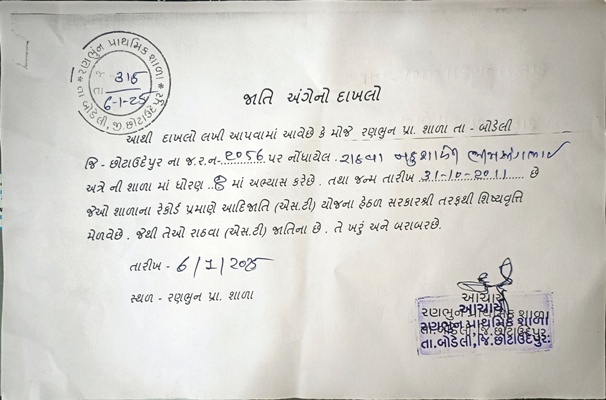 રણભુન પ્રાથમિક શાળા
તા. બોડેલી, જી. છોટાઉદેપુર
જા. 315
તા 6-1-25
જાતિ અંગેનો દાખલો
આથી દાખલો લખી આપવામાં આવેછે કે મોજે રણભુન પ્રા. શાળા તા - બોડેલી
જિ - છોટાઉદેપુર ના જ.ર.ન- ૨૦56 પર નોંધાયેલ. રાઠવા
અત્રે ની શાળા માં ધોરણ . 8 માં અભ્યાસ કરેછે . તથા જન્મ તારીખ 31-10-2011 છે
જેઓ શાળાના રેકોર્ડ પ્રમાણે આદિજાતિ (એસ.ટી) યોજના હેઠળ સરકારશ્રી તરફથી શિષ્યવૃત્તિ
મેળવેછે . જેથી તેઓ રાઠવા (એસ.ટી) જાતિના છે . તે ખરું અને બરાબરછે.
તારીખ - 6/1/૨૦૨૫
સ્થળ - રણભુન પ્રા. શાળા
આચાર્ય
રણભુન પ્રાથમિક શાળા
તા.બોડેલી,જિ.છોટાઉદેપુર